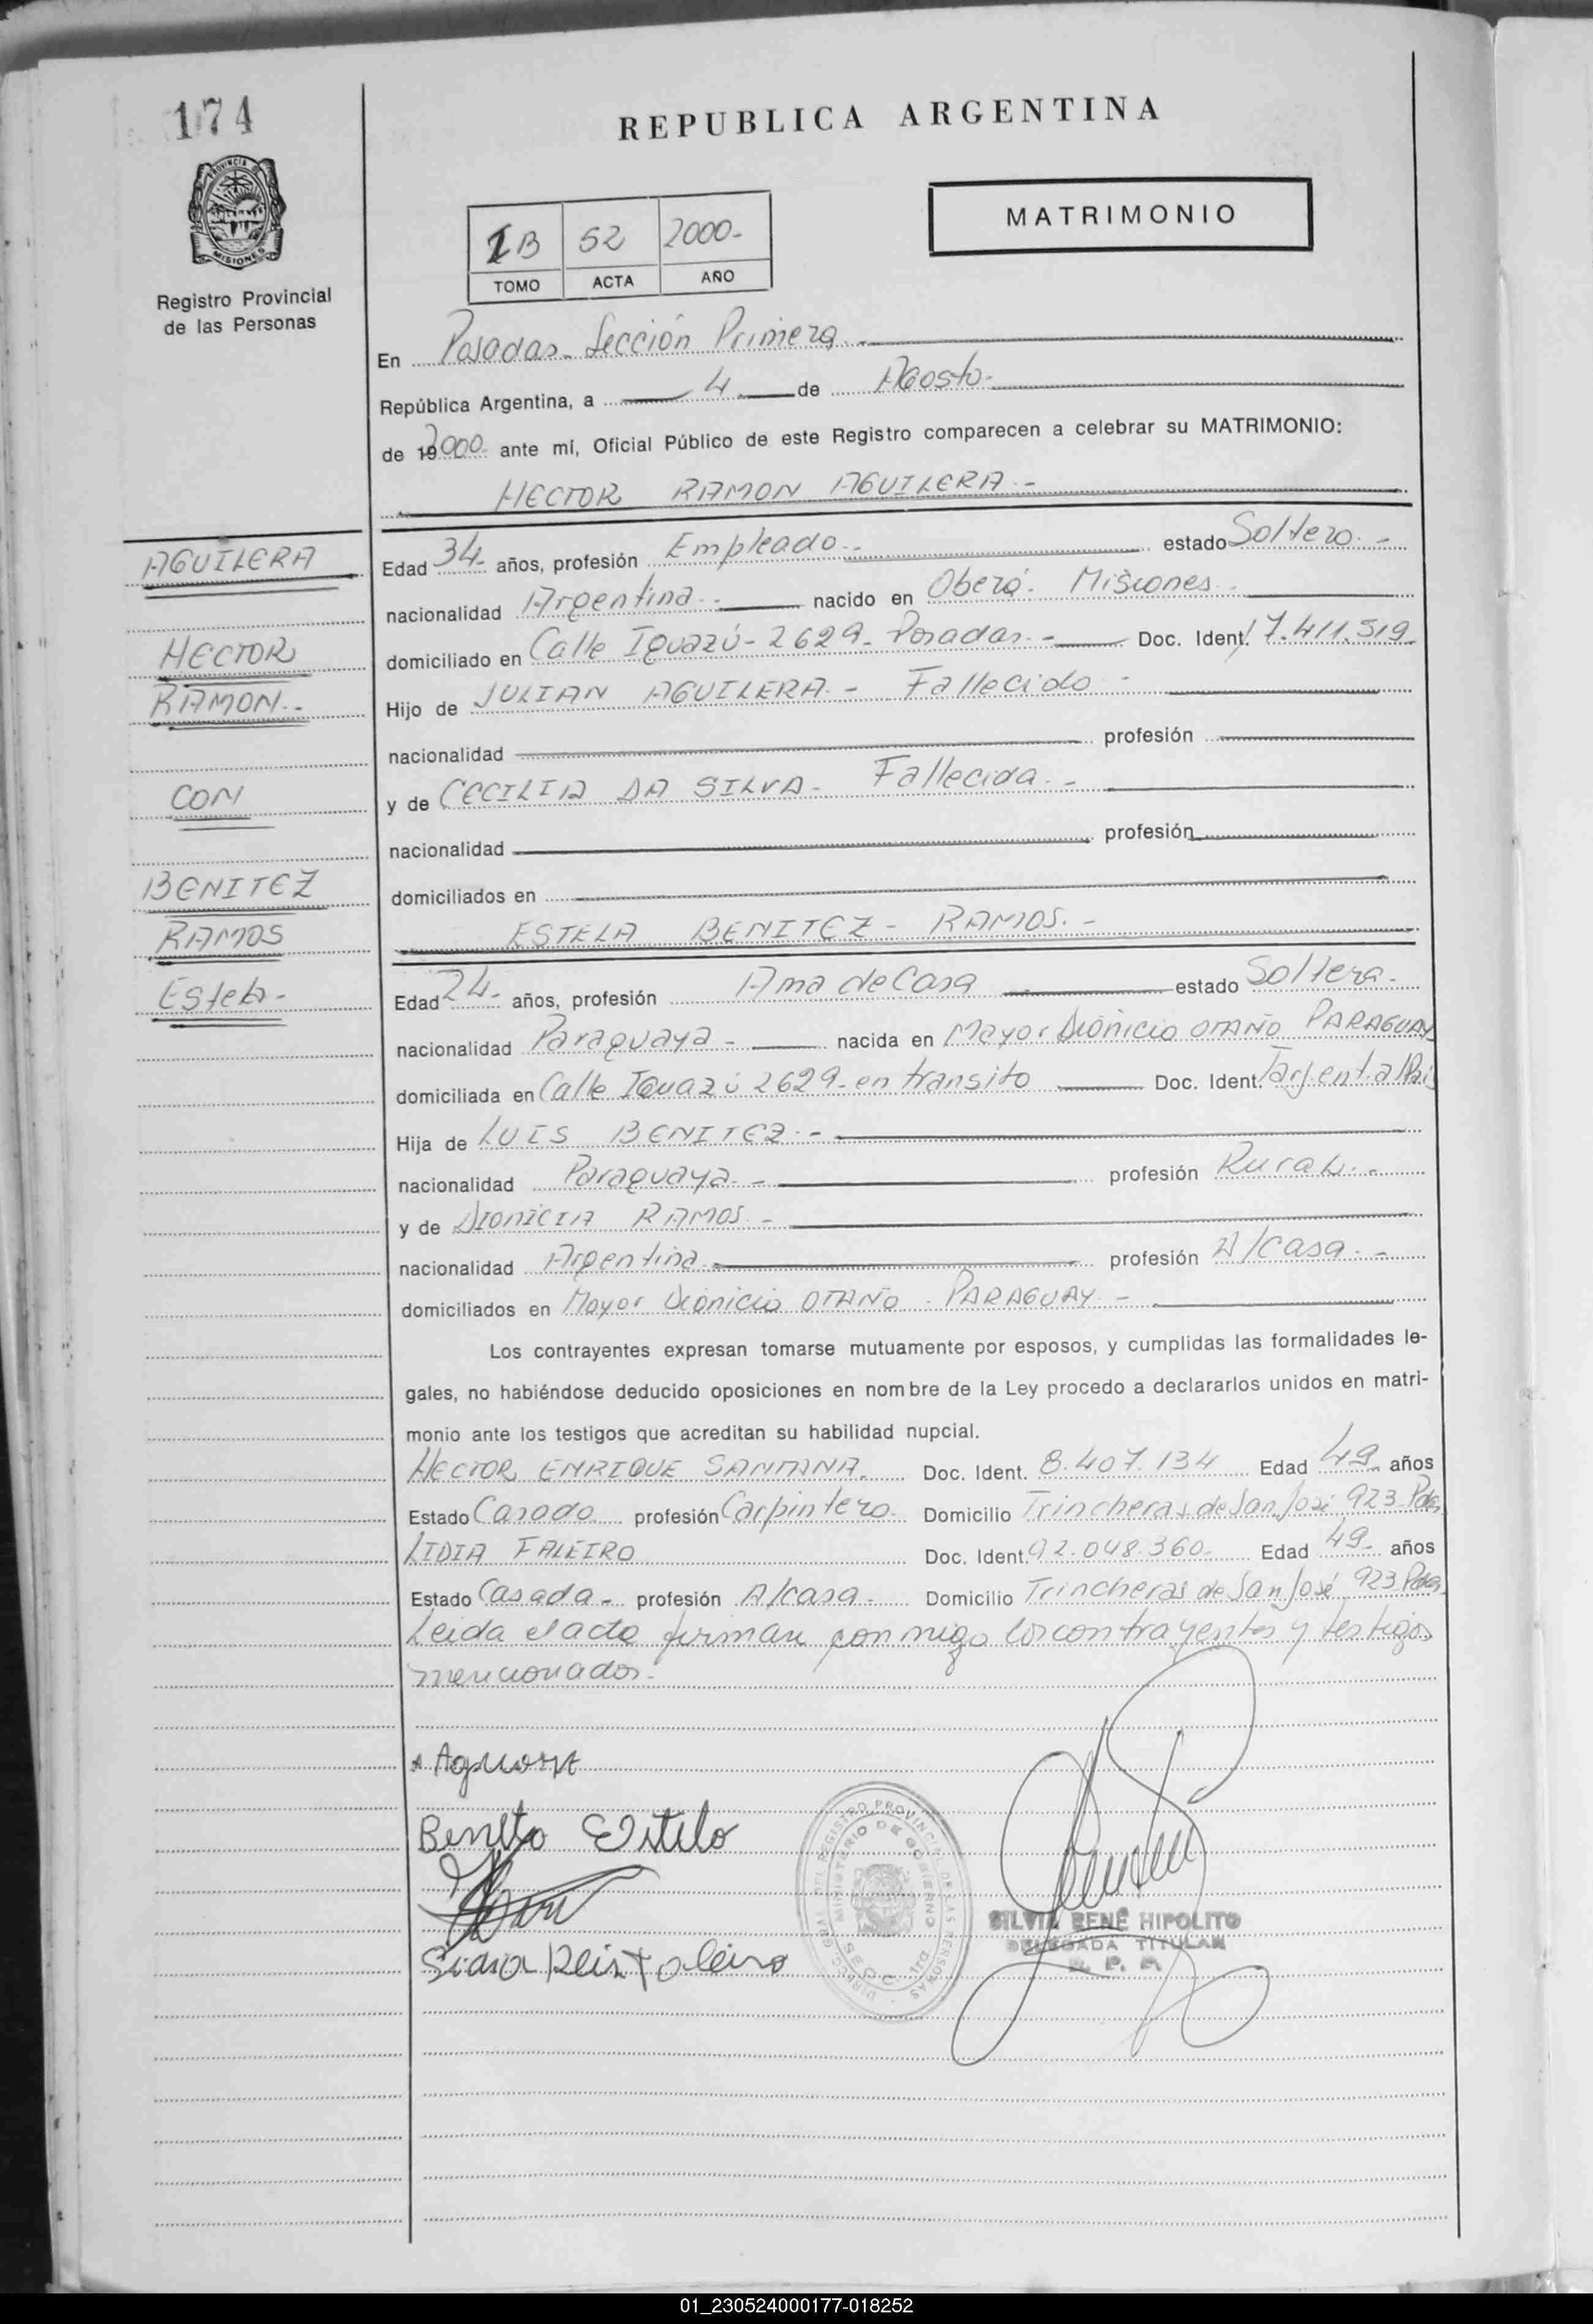 174
REPUBLICA ARGENTINA
PROVINCIA DE
MISIONES
Registro Provincial
de las Personas
MATRIMONIO
1B 52 2000-
TOMO ACTA AÑO
En Posadas - Sección Primera -
República Argentina, a 4 de Agosto -
de 2000 ante mí, Oficial Público de este Registro comparecen a celebrar su MATRIMONIO:
HECTOR RAMON AGUILERA -
AGUILERA
HECTOR
RAMON -
CON
BENITEZ
RAMOS
Estela -
Edad 34 - años, profesión Empleado - estado Soltero -
nacionalidad Argentina - nacido en Oberá - Misiones -
domiciliado en Calle Iguazú - 2629 - Posadas - Doc. Ident. 17.411.519
Hijo de JULIAN AGUILERA - Fallecido -
nacionalidad profesión
y de CECILIA DA SILVA - Fallecida -
nacionalidad profesión
domiciliados en
ESTELA BENITEZ - RAMOS -
Edad 24 - años, profesión Ama de Casa estado Soltera -
nacionalidad Paraguaya - nacida en Mayor Dionicio OTAÑO PARAGUAY
domiciliada en Calle Iguazú 2629 - en transito Doc. Ident.
Hija de LUIS BENITEZ -
nacionalidad Paraguaya - profesión Rural -
y de DIONICIA RAMOS -
nacionalidad Argentina profesión A/casa -
domiciliados en Mayor Dionicio OTAÑO - PARAGUAY -
Los contrayentes expresan tomarse mutuamente por esposos, y cumplidas las formalidades le-
gales, no habiéndose deducido oposiciones en nombre de la Ley procedo a declararlos unidos en matri-
monio ante los testigos que acreditan su habilidad nupcial.
HECTOR ENRIQUE SANTANA Doc. Ident. 8.407.134 Edad 49 - años
Estado Casado profesión Carpintero Domicilio Trincheras de San José 923 Pdas
LIDIA FALEIRO Doc. Ident. 92.048.360 - Edad 49 - años
Estado Casada - profesión A/casa - Domicilio Trincheras de San José 923 Pdas
Leida el acta firman conmigo los contrayentes y testigos
mencionados -
Benito Estela
DIRECC. GRAL. DEL REGISTRO PROVINCIAL DE LAS PERSONAS
MINISTERIO DE GOBIERNO
SILVIA RENÉ HIPOLITO
DELEGADA TITULAR
R. P. P.
01_230524000177-018252